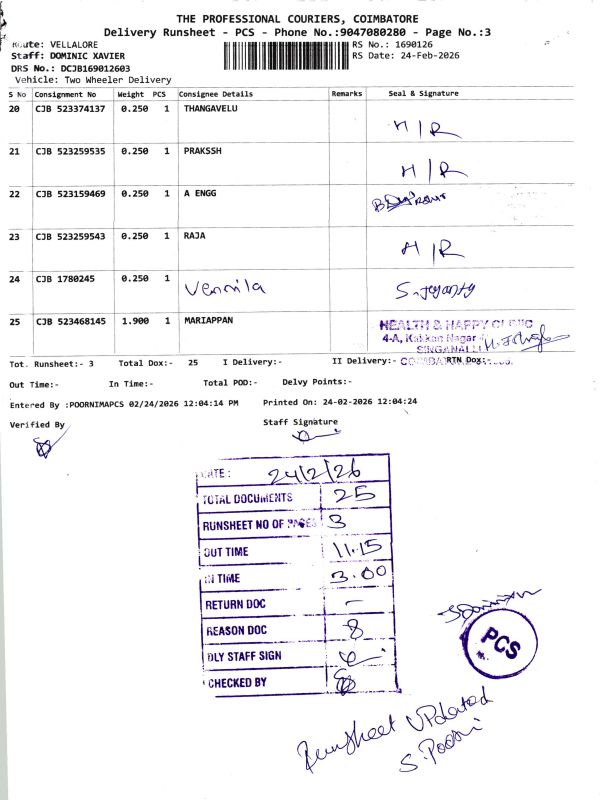 THE PROFESSIONAL COURIERS, COIMBATORE
Delivery Runsheet - PCS - Phone No.:9047080280 - Page No.:3
Route: VELLALORE
RS No.: 1690126
Staff: DOMINIC XAVIER
RS Date: 24-Feb-2026
DRS No.: DCJB169012603
Vehicle: Two Wheeler Delivery
S No Consignment No Weight PCS Consignee Details Remarks Seal & Signature
20 CJB 523374137 0.250 1 THANGAVELU H/R
21 CJB 523259535 0.250 1 PRAKSSH H/R
22 CJB 523159469 0.250 1 A ENGG
23 CJB 523259543 0.250 1 RAJA H/R
24 CJB 1780245 0.250 1 Vennila S.Jeyanthy
25 CJB 523468145 1.900 1 MARIAPPAN
HEALTH & HAPPY CLINIC
4-A, Kakkan Nagar
SINGANALLUR
Tot. Runsheet:- 3 Total Dox:- 25 I Delivery:- II Delivery:- RTN Dox:-
Out Time:- In Time:- Total POD:- Delvy Points:-
Entered By :POORNIMAPCS 02/24/2026 12:04:14 PM Printed On: 24-02-2026 12:04:24
Verified By Staff Signature
DATE: 24/2/26
TOTAL DOCUMENTS 25
RUNSHEET NO OF PAGES 3
OUT TIME 11.15
IN TIME 3.00
RETURN DOC –
REASON DOC 8
DLY STAFF SIGN
CHECKED BY
PCS
Runsheet UPdated
S.Poorni